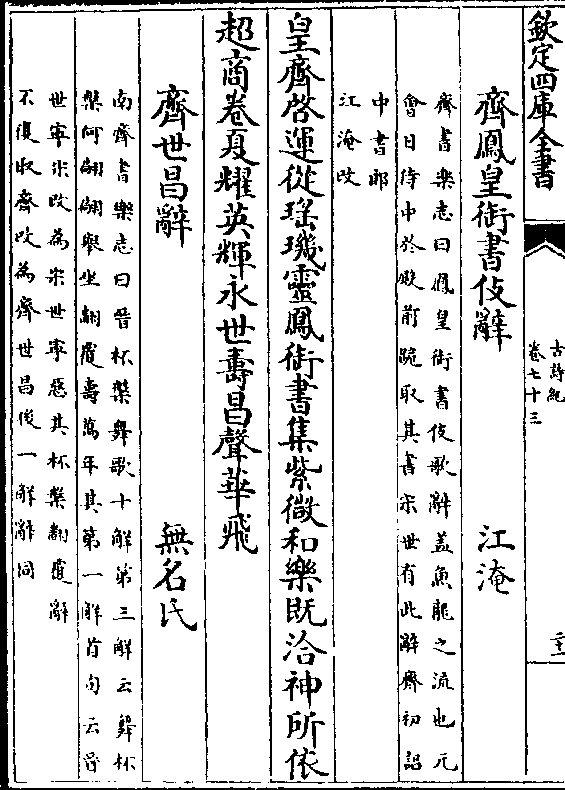 欽定四庫全書
古詩紀
卷七十三
二十一
齊鳳皇銜書伎辭
江淹
齊書樂志曰鳳皇銜書伎歌辭蓋魚龍之流也元
會日侍中於殿前跪取其書宋世有此辭齊初詔
中書郎
江淹改
皇齊啓運從瑤璣靈鳳銜書集紫微和樂既洽神所依
超商卷夏耀英輝永世壽昌聲華飛
齊世昌辭
無名氏
南齊書樂志曰晉杯槃舞歌十解第三解云舞杯
槃何翩翩舉坐翻覆壽萬年其第一解首句云晉
世寧宋改為宋世寧惡其杯槃翻覆辭
不復取齊改為齊世昌後一解辭同